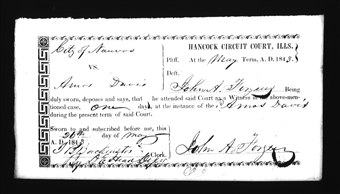 HANCOCK CIRCUIT COURT, ILLS.
City of Nauvoo
Pltff.
At the May Term, A. D. 1843.
VS.
Deft.
Amos Davis
John A. Being
duly sworn, deposes and says, that he attended said Court as a Witness in the above-men-
tioned case, one day at the instance of the Amos Davis
during the present term of said Court.
Sworn to and subscribed before me, this
day of May
A. D. 184
John A.
Clerk.